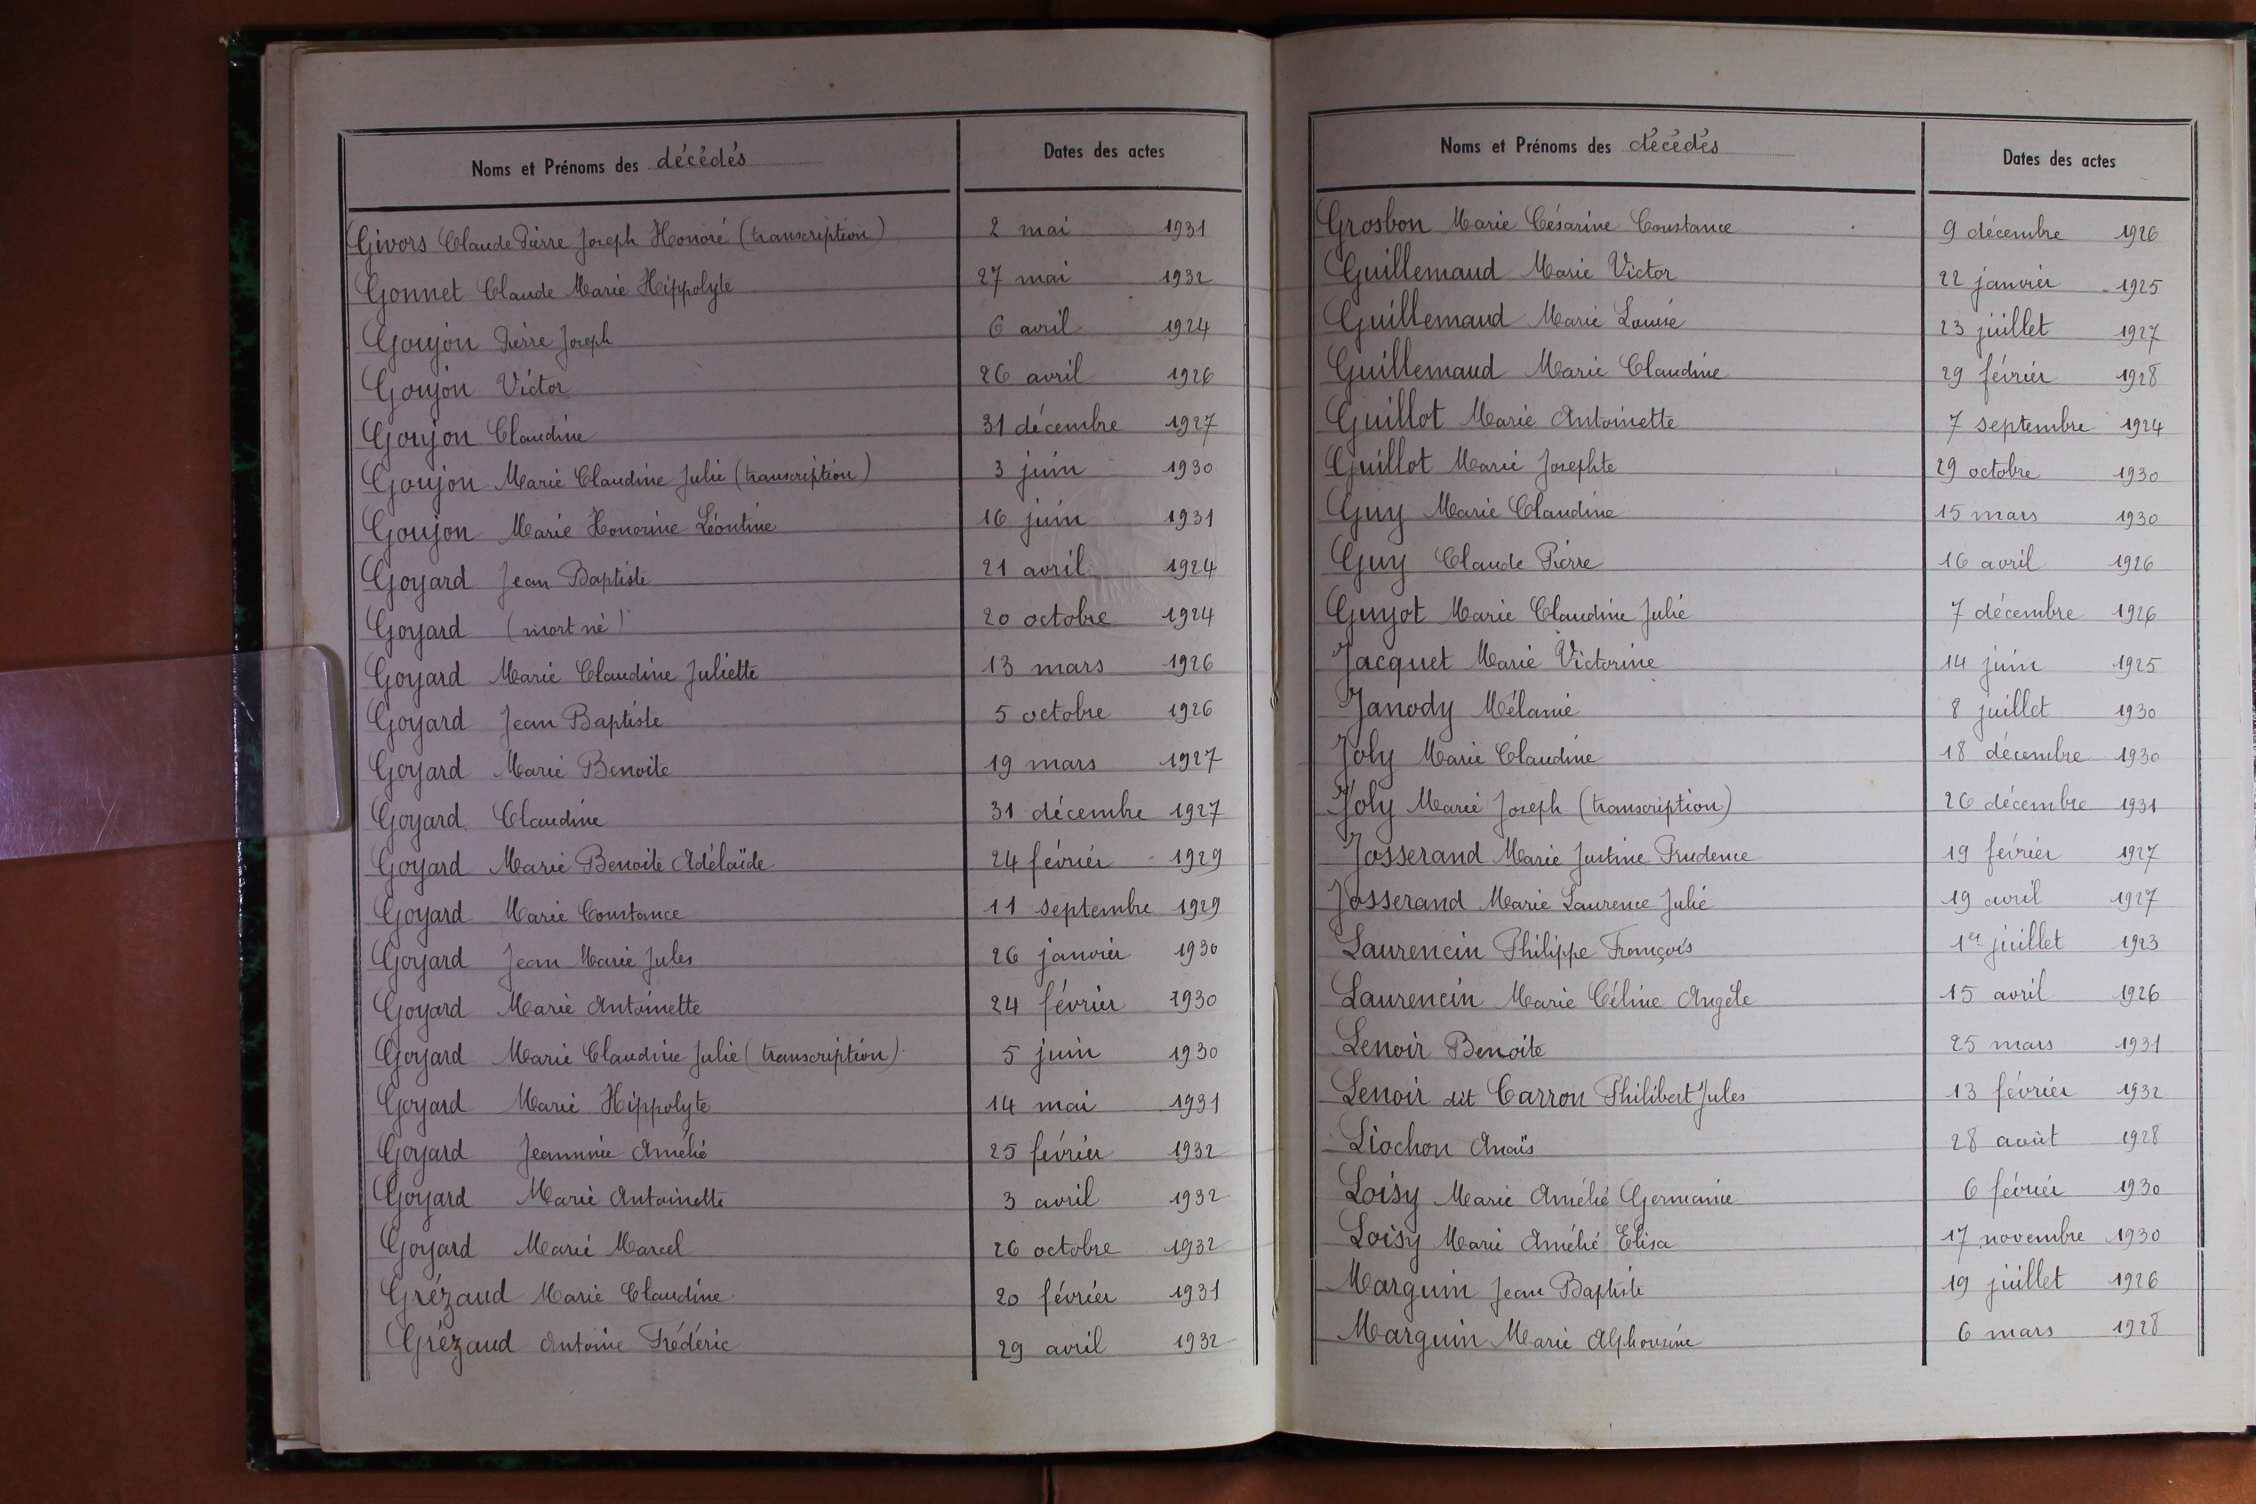 Noms et Prénoms des décédés Dates des actes
Givors Claude Pierre Joseph Honoré (transcription) 2 mai 1931
Gonnet Claude Marie Hippolyte 27 mai 1932
Goujon Pierre Joseph 6 avril 1924
Goujon Victor 26 avril 1926
Goujon Claudine 31 décembre 1927
Goujon Marie Claudine Julie (transcription) 3 juin 1930
Goujon Marie Honorine Léontine 16 juin 1931
Goyard Jean Baptiste 21 avril 1924
Goyard (mort né) 20 octobre 1924
Goyard Marie Claudine Juliette 13 mars 1926
Goyard Jean Baptiste 5 octobre 1926
Goyard Marie Benoite 19 mars 1927
Goyard Claudine 31 décembre 1927
Goyard Marie Benoite Adélaïde 24 février 1929
Goyard Marie Constance 11 septembre 1929
Goyard Jean Marie Jules 26 janvier 1930
Goyard Marie Antoinette 24 février 1930
Goyard Marie Claudine Julie (transcription) 5 juin 1930
Goyard Marie Hippolyte 14 mai 1931
Goyard Jeannine Amélie 25 février 1932
Goyard Marie Antoinette 3 avril 1932
Goyard Marie Marcel 26 octobre 1932
Grézaud Marie Claudine 20 février 1931
Grézaud Antoine Frédéric 29 avril 1932
Noms et Prénoms des décédés Dates des actes
Grosbon Marie Césarine Constance 9 décembre 1926
Guillemaud Marie Victor 22 janvier 1925
Guillemaud Marie Louise 23 juillet 1927
Guillemaud Marie Claudine 29 février 1928
Guillot Marie Antoinette 7 septembre 1924
Guillot Marie Josephte 29 octobre 1930
Guy Marie Claudine 15 mars 1930
Guy Claude Pierre 16 avril 1926
Guyot Marie Claudine Julie 7 décembre 1926
Jacquet Marie Victorine 14 juin 1925
Janody Mélanie 8 juillet 1930
Joly Marie Claudine 18 décembre 1930
Joly Marie Joseph (transcription) 26 décembre 1931
Josserand Marie Justine Prudence 19 février 1927
Josserand Marie Laurence Julie 19 avril 1927
Laurencin Philippe François 1er juillet 1923
Laurencin Marie Céline Angèle 15 avril 1926
Lenoir Benoite 25 mars 1931
Lenoir dit Carron Philibert Jules 13 février 1932
Liochon Anaïs 28 août 1928
Loisy Marie Amélie Germanie 6 février 1930
Loisy Marie Amélie Elisa 17 novembre 1930
Marguin Jean Baptiste 19 juillet 1926
Marguin Marie Alphonsine 6 mars 1928